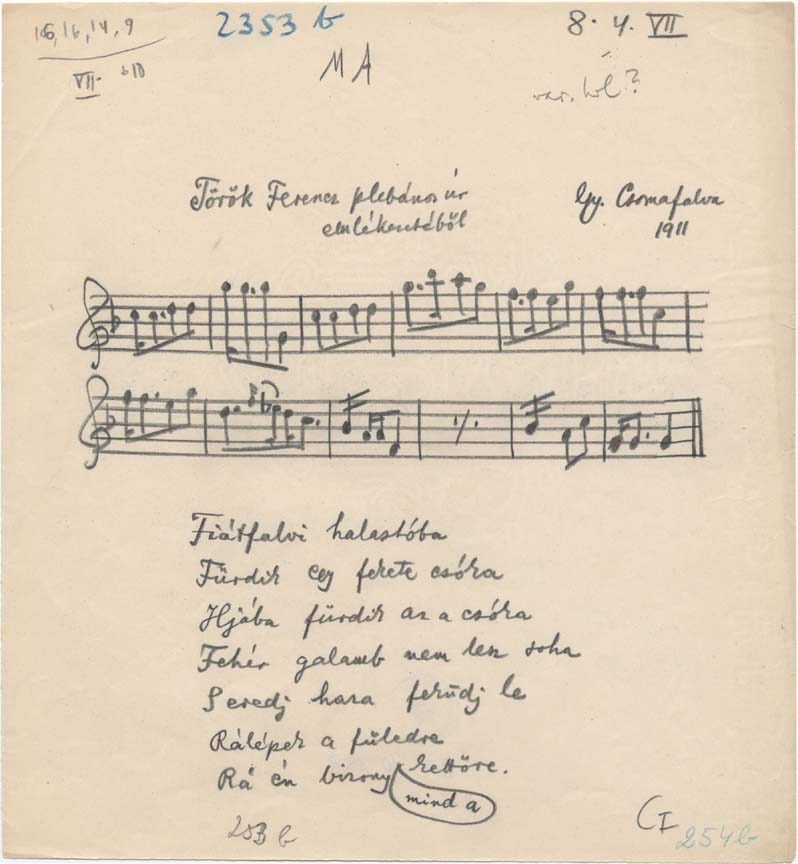 2353 b
8. 4. VII
16, 14, 9
VII. 610
MA
var. hol?
Török Ferencz plebános úr
emlékezetéből
Gy. Csomafalva
1911
Fiátfalvi halastóba
Fürdik egy fekete csóka
Hjába fürdik az a csóka
Fehér galamb nem lesz soha
Seredj haza feküdj le
Rálépek a füledre
Rá én bizony kettőre.
mind a
253 b
CI
254b